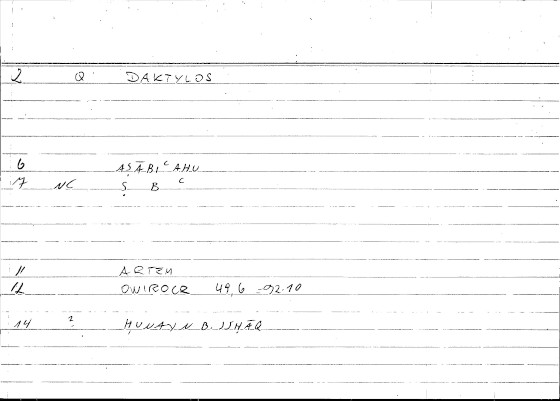 2 Q DAKTYLOS
6 AṢĀBIᶜAHU
7 NC Ṣ B ᶜ
11 ARTEM
12 ONIROCR 49,6 =92.10
14 ? ḤUNAYN B. ISḤĀQ